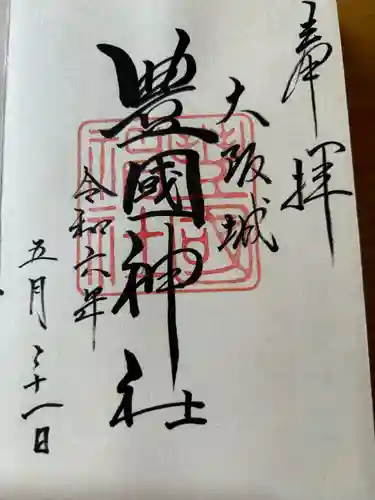 奉拝
大阪城
豊國神社
令和六年
五月二十一日